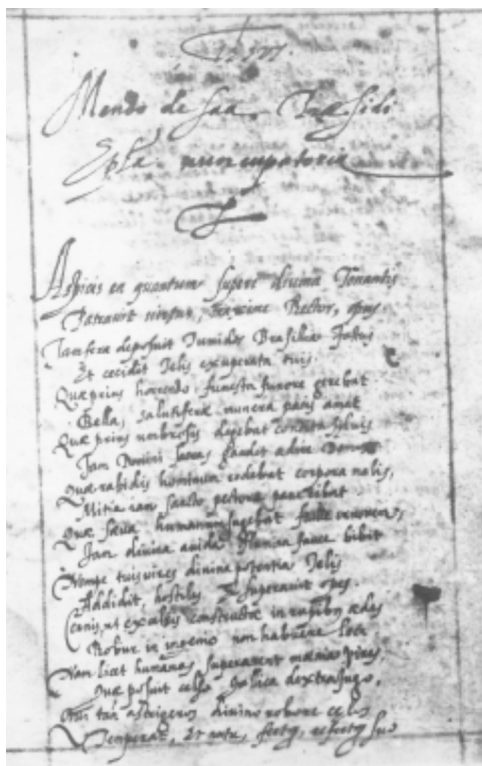 Mendo de Saa, Præsidi
Epla nuncupatoria
Aspicis en quantum superi divina Tonantis
virtus, maxime Rector, opus
Jam fera deposuit tumidos Brasilia fastus
Et cecidit telis exuperata tuis.
Quæ prius horrendo funesta furore gerebat
Bella, salutiferæ munera pacis amat
Quæ prius umbrosis degebat condita sylvis
Jam Domini gaudet adire
Quæ rabidis hominum rodebat corpora malis,
Mitia iam sancto pectore
Quæ sæva humanum sugebat fauce cruorem,
Jam divina avida flumina fauce bibit
Nempe tuis vires divina potentia telis
Addidit, hostiles & superavit opes.
Cernis, ut excelsis constructæ in rupibus ædes
Robur in ingenio non habuere loci
Nam licet humanas superarent mœnia vires,
Quæ posuit celso Gallica dextra iugo,
tan astrigeros divino robore celos
Temperat, Et natu,